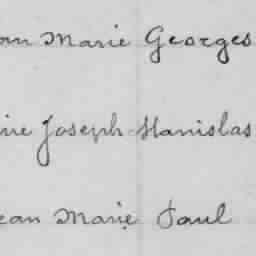 Marie Georges
Joseph Stanislas
Jean Marie Paul